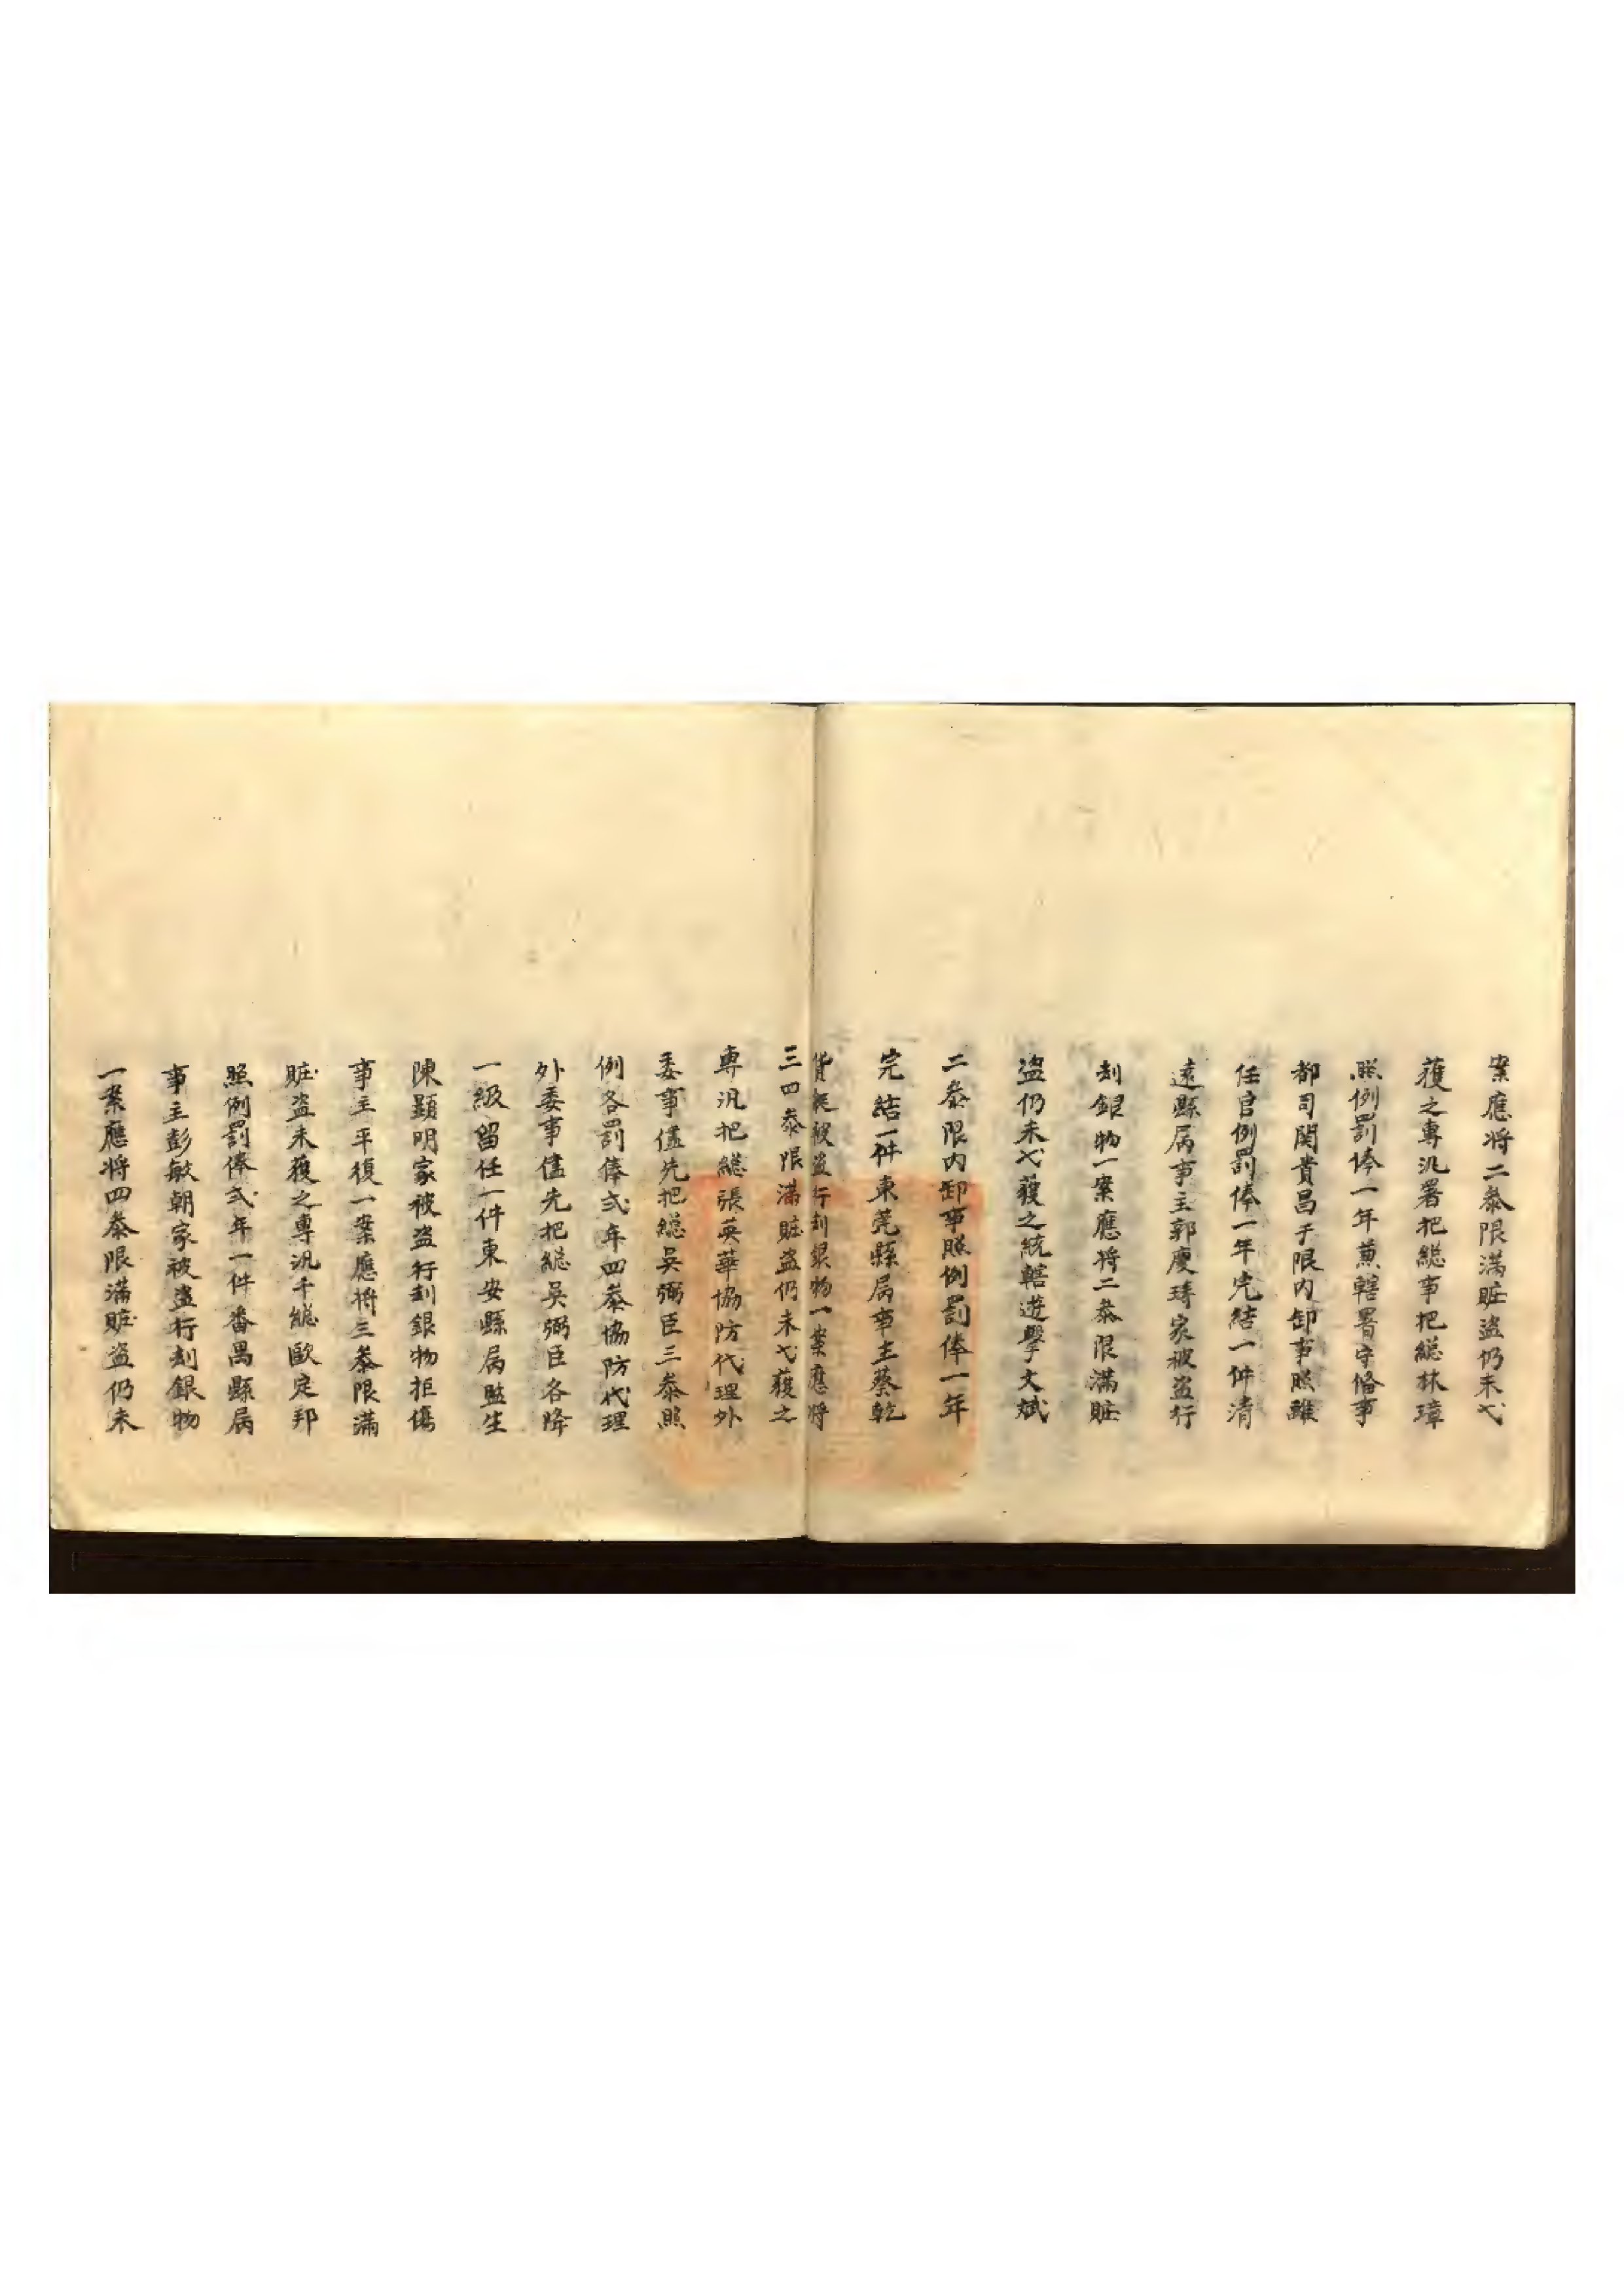 案應将二叅限滿賍盗仍未弋
獲之專汎署把緫事把緫林璋
照例罰俸一年兼轄署守備事
都司関貴昌于限内卸事照離
任官例罰俸一年完結一件清
逺縣属事主郭慶琦家被盗行
刦銀物一案應将二叅限滿賍
盗仍未弋獲之統轄遊擊文斌
二叅限内卸事照例罰俸一年
完結一件東莞縣属事主蔡乾
貨艇被盗行刦銀物一案應将
三四叅限滿賍盗仍未弋獲之
專汎把緫張英華協防代理外
委事儘先把緫吳弼臣三叅照
例各罰俸弍年四叅協防代理
外委事儘先把緫吳弼臣各降
一級留任一件東安縣属監生
陳顕明家被盗行刦銀物拒傷
事主平復一案應将三叅限滿
賍盗未獲之專汎千緫歐定邦
照例罰俸弍年一件番禺縣属
事主彭敏朝家被盗行刦銀物
一案應将四叅限滿賍盗仍未